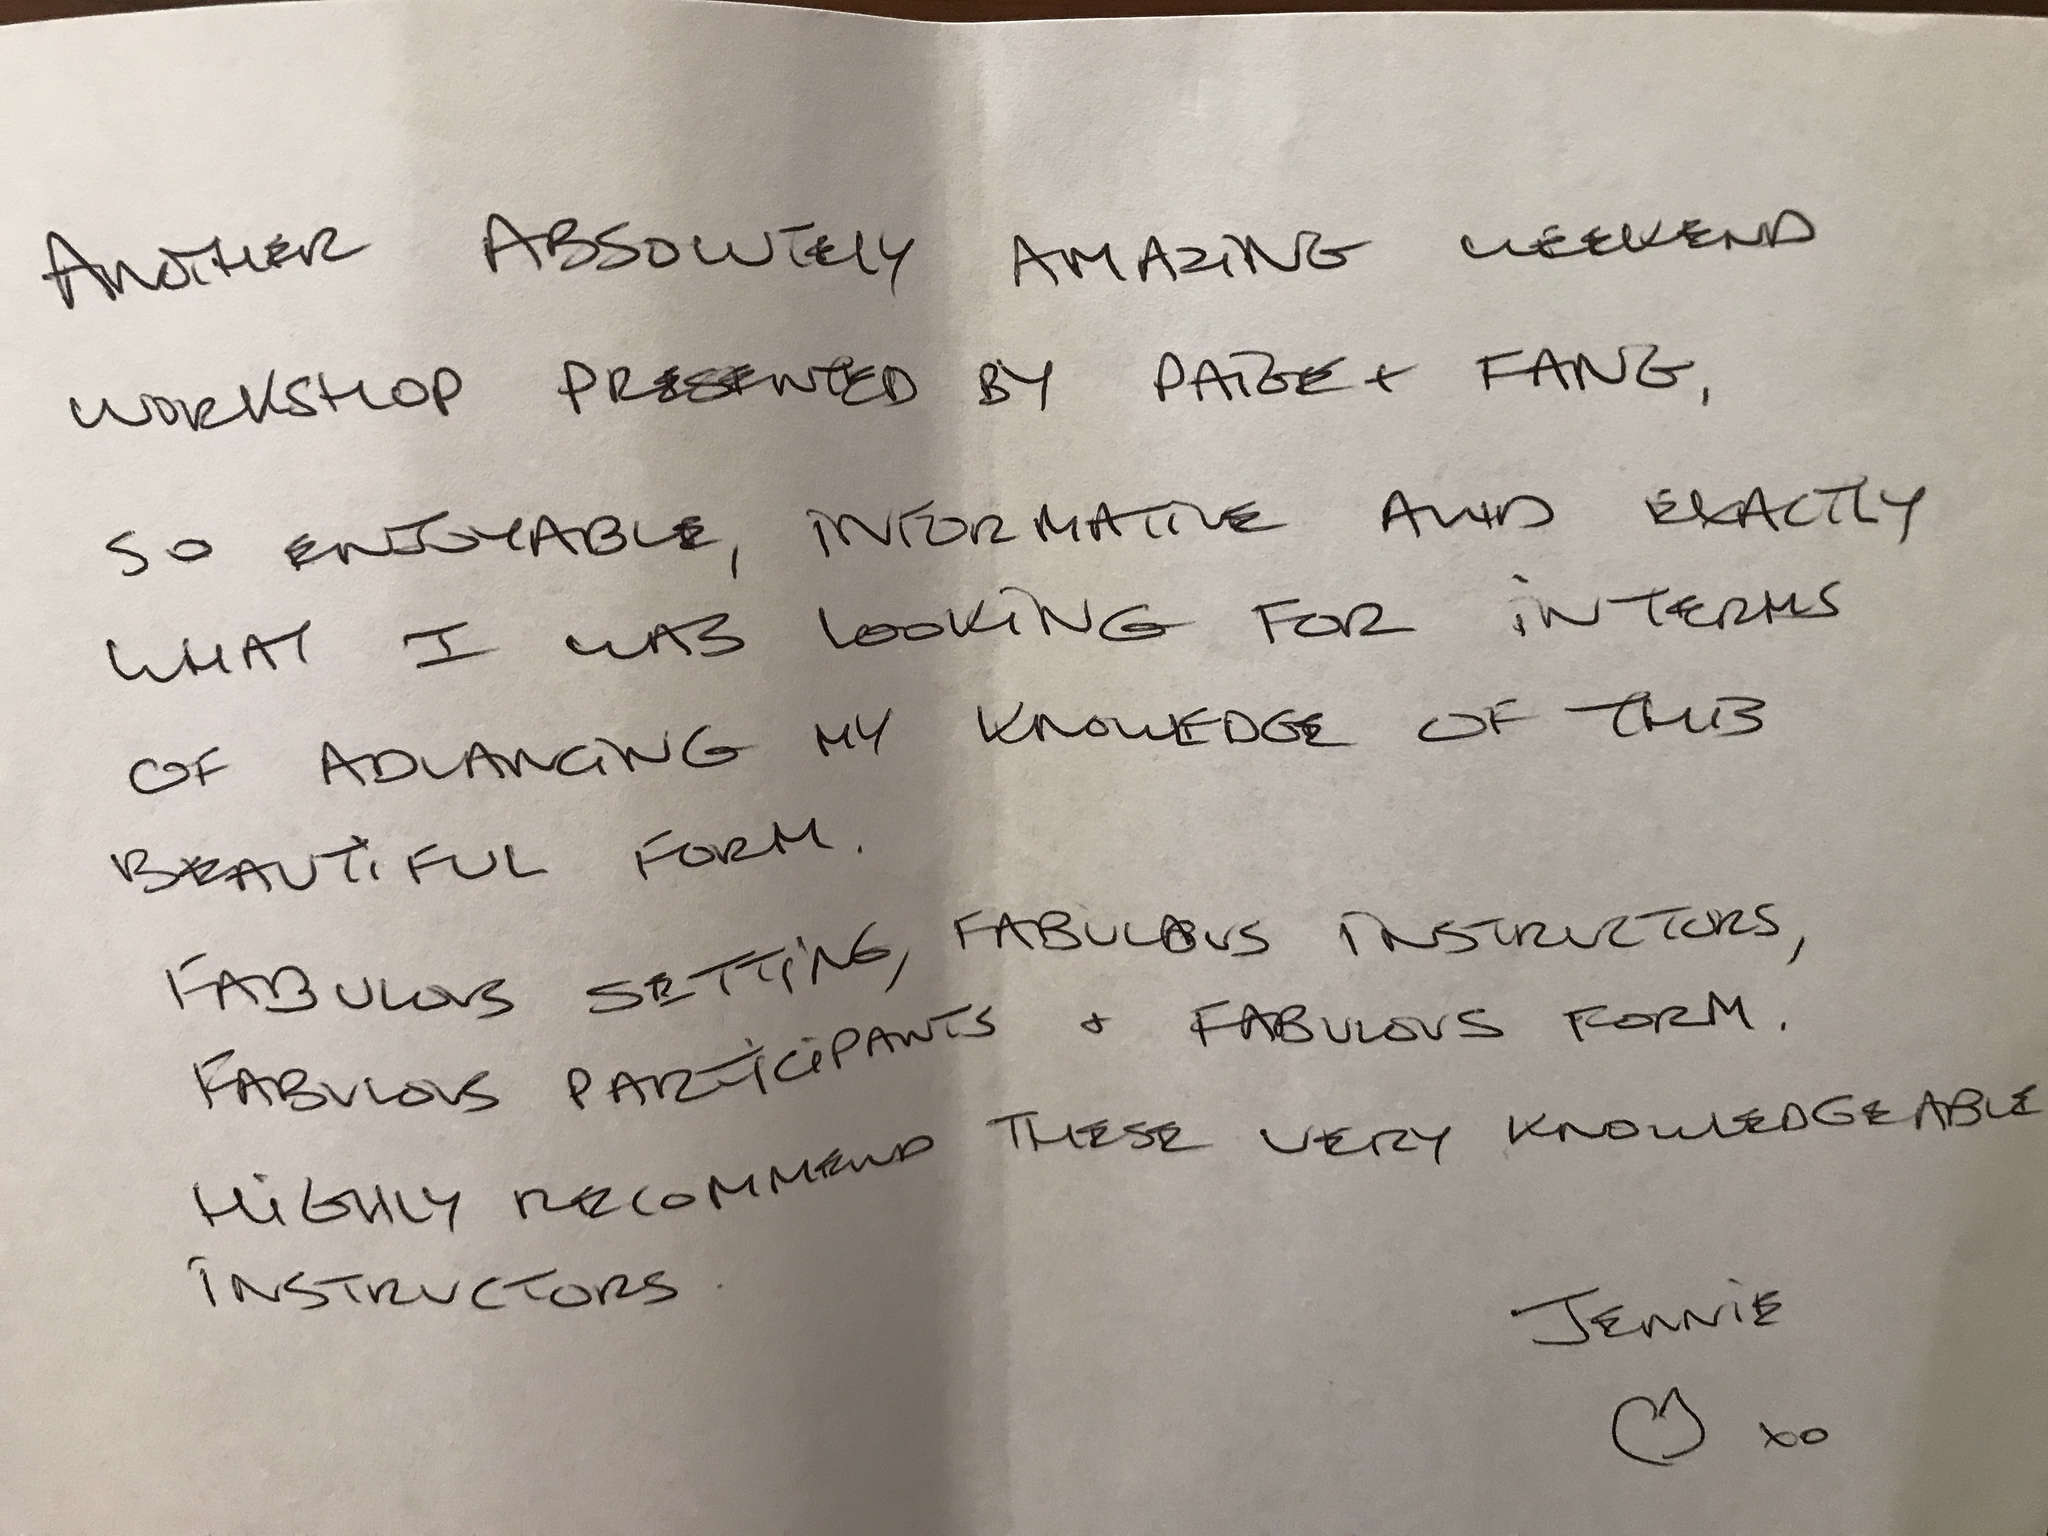 ANOTHER ABSOLUTELY AMAZING WEEKEND
WORKSHOP PRESENTED BY PAIGE + FANG,
SO ENJOYABLE, INFORMATIVE AND EXACTLY
WHAT I WAS LOOKING FOR IN TERMS
OF ADVANCING MY KNOWLEDGE OF THIS
BEAUTIFUL FORM.
FABULOUS SETTING, FABULOUS INSTRUCTORS,
FABULOUS PARTICIPANTS + FABULOUS FORM.
HIGHLY RECOMMEND THESE VERY KNOWLEDGEABLE
INSTRUCTORS.
JENNIE
xo